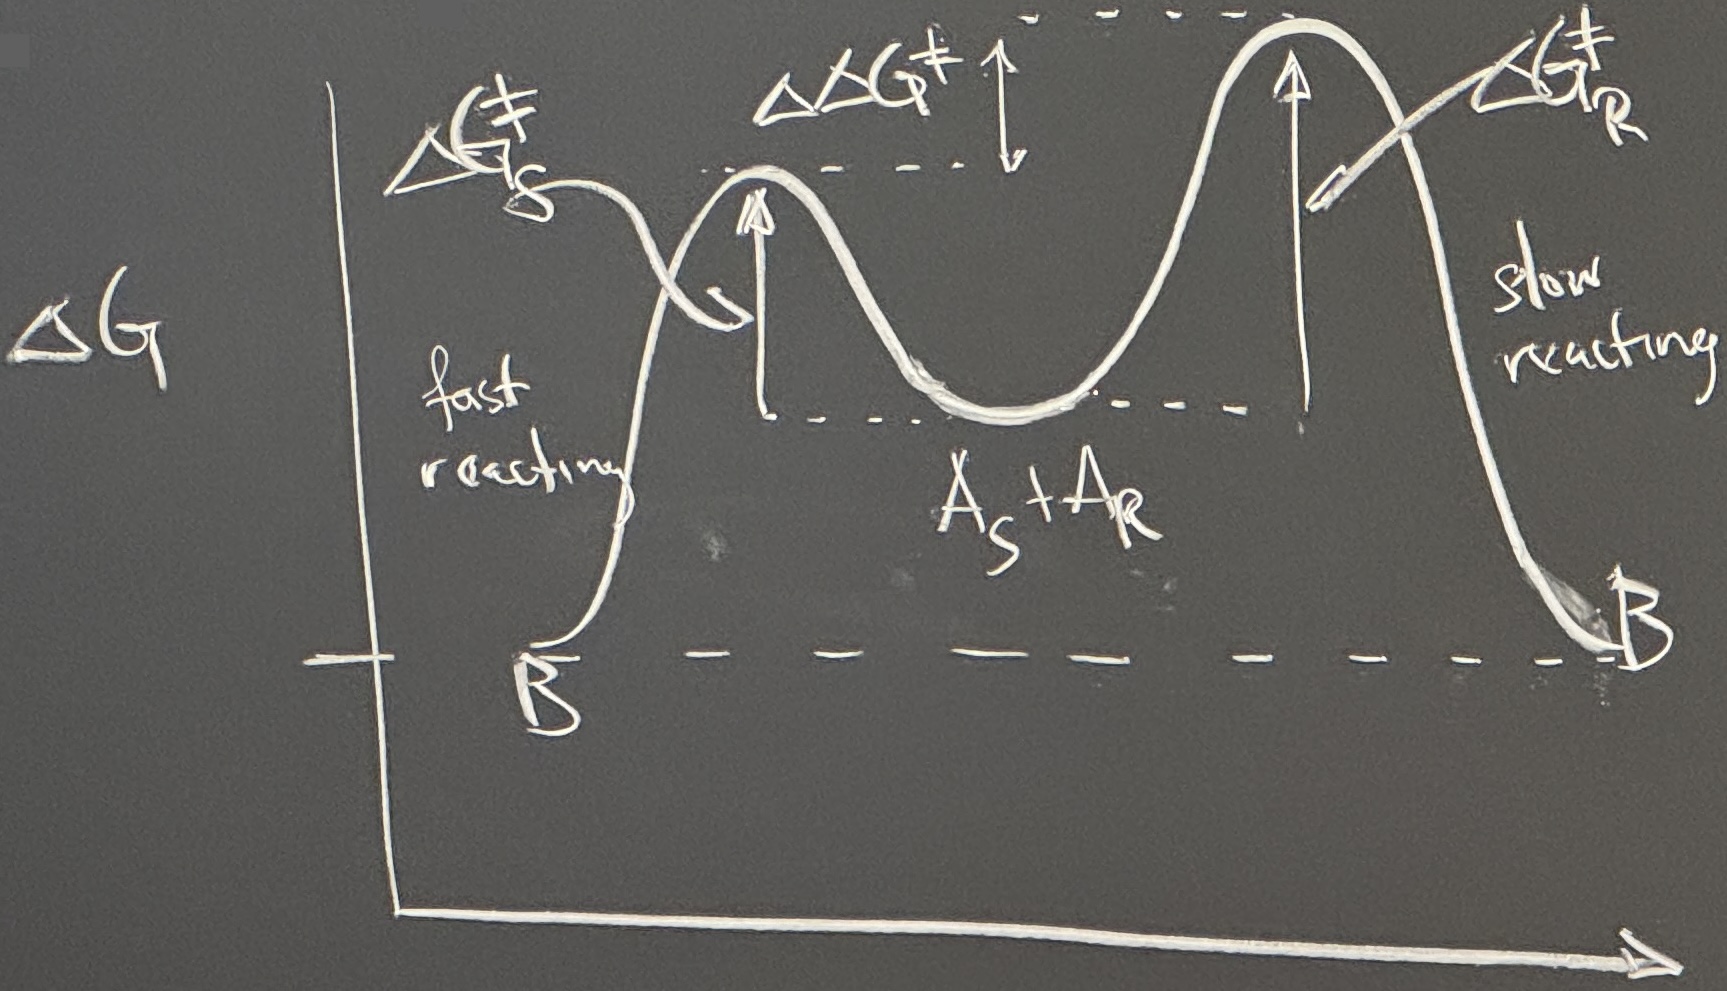 ΔΔG‡
ΔG‡R
ΔG‡S
ΔG
fast
reacting
slow
reacting
AS + AR
B
B